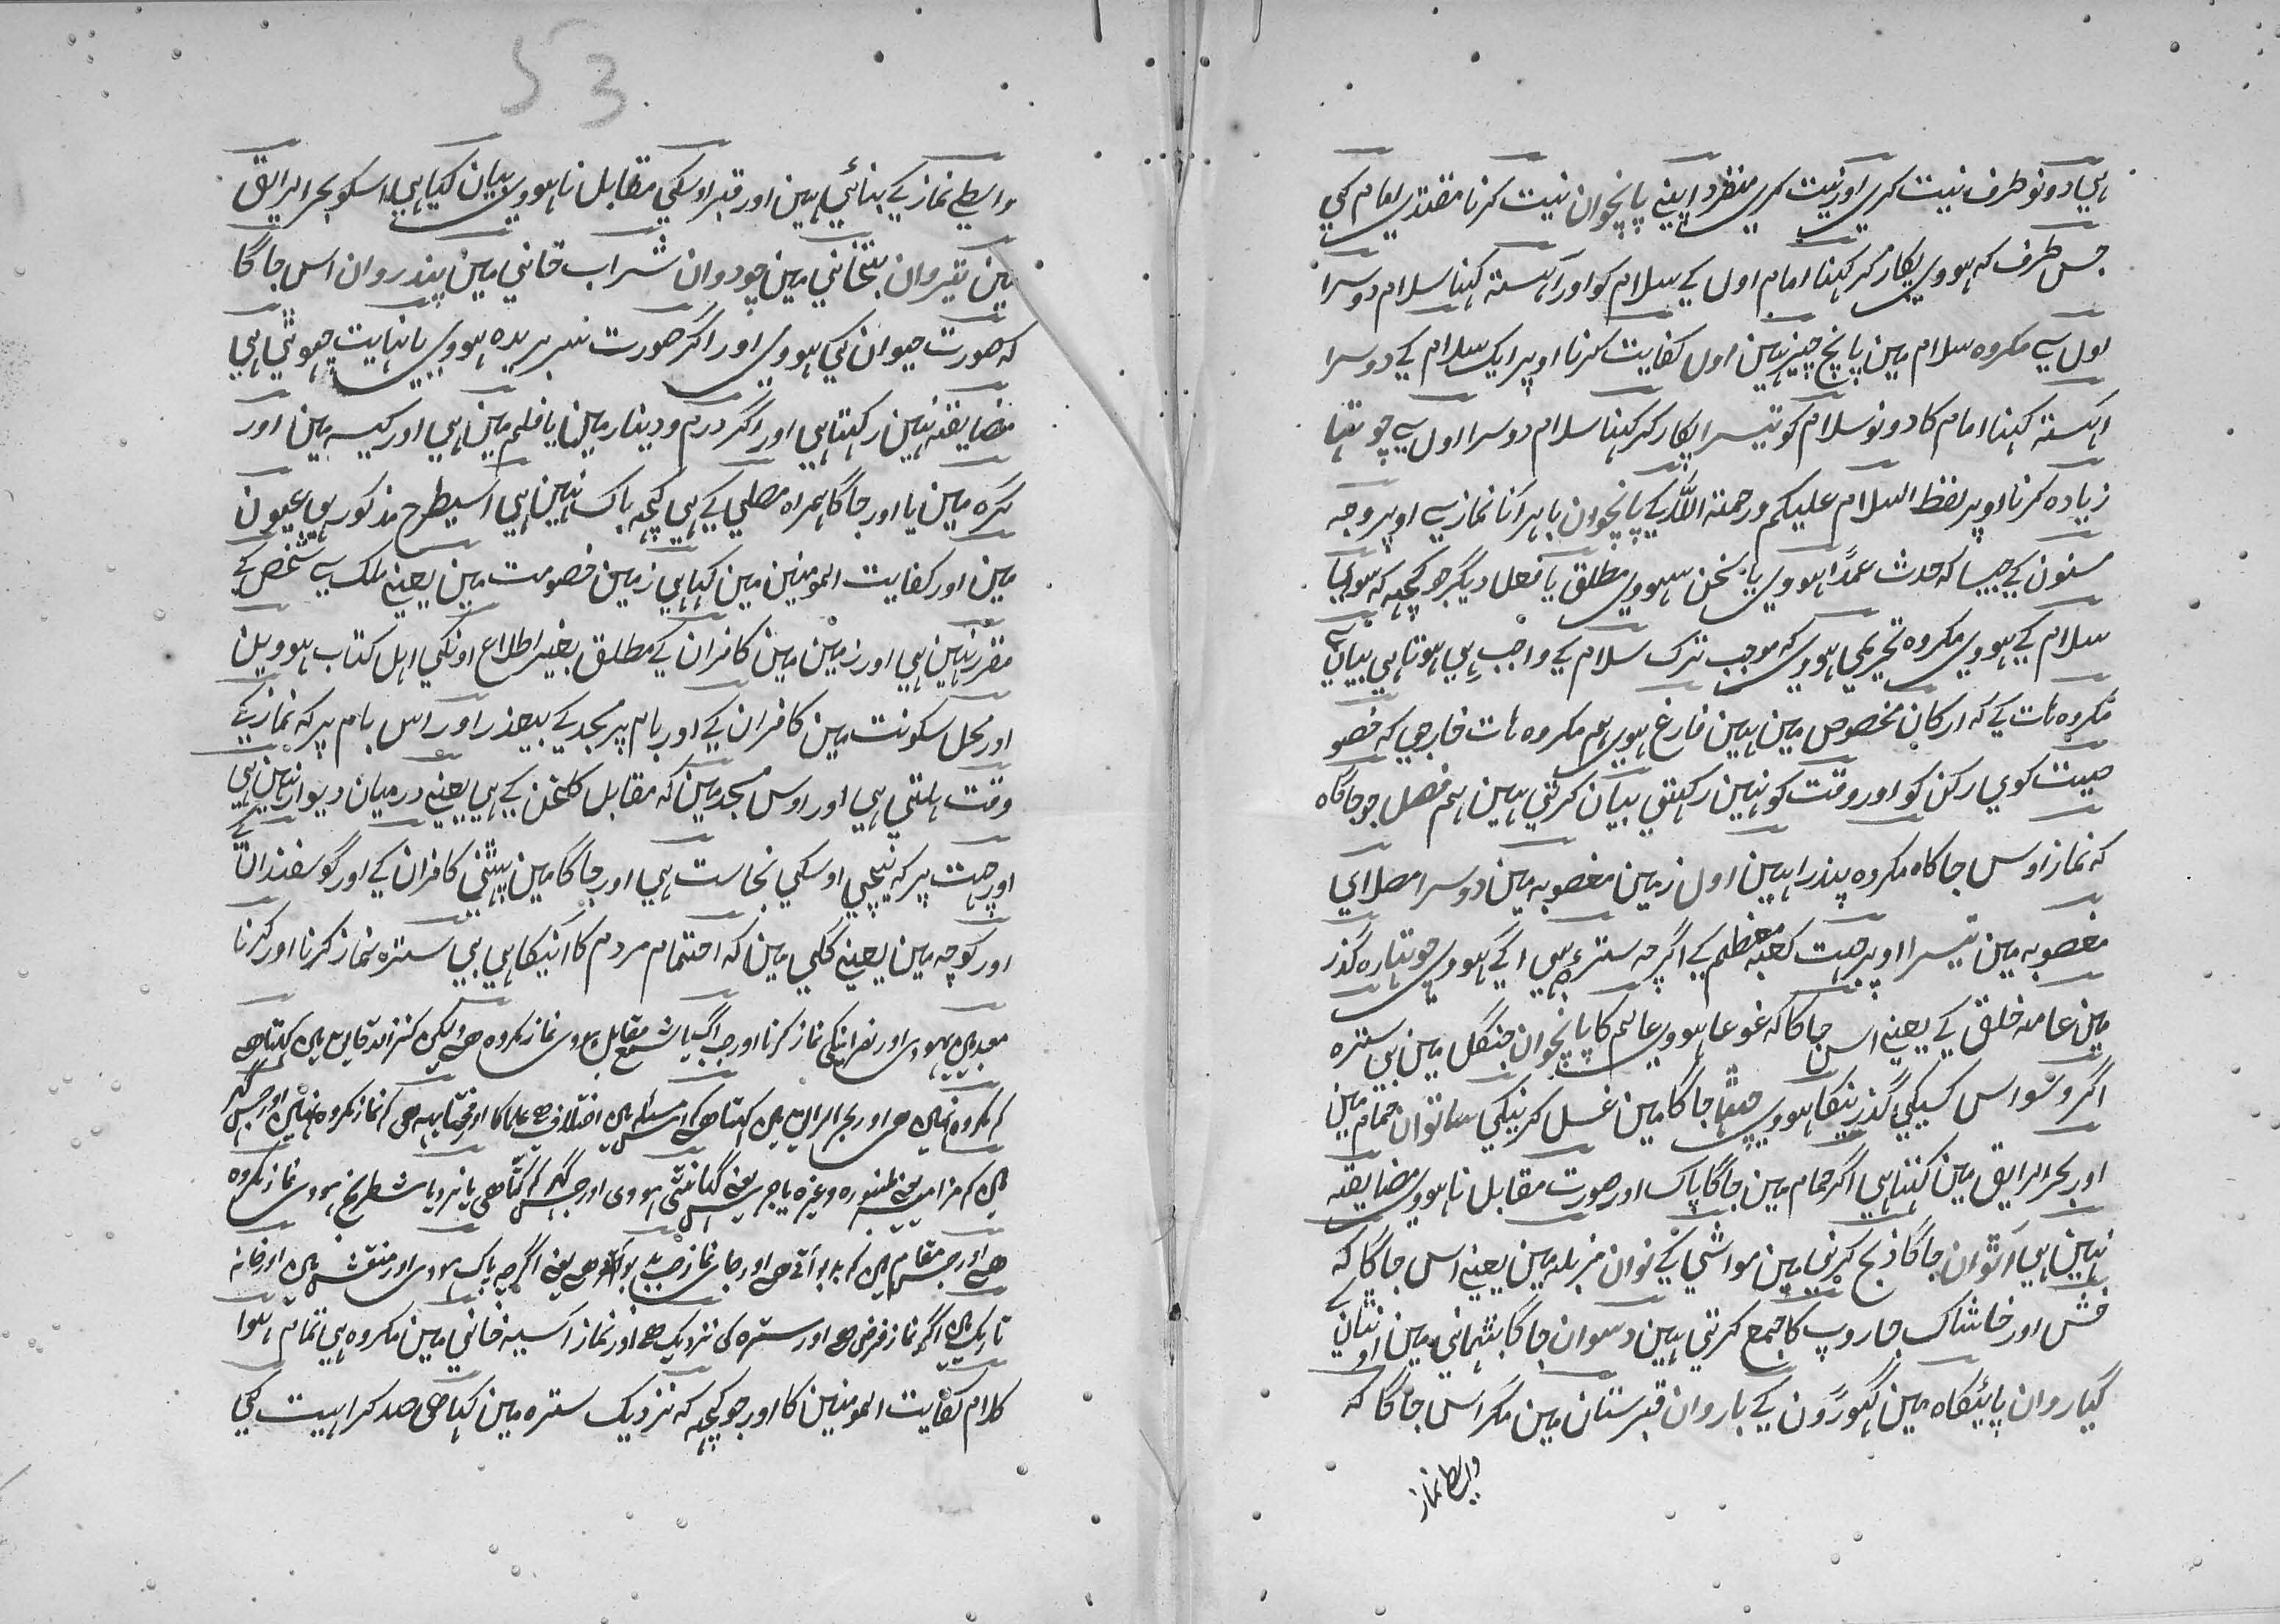 ہی دونو طرف نیت کری اور نیت کری منفرد اپنے پانچوان نیت کرنا مقتدی امام کی
جس طرف کہ ہووی پکار کر کہنا امام اول کے سلام کو اور آہستہ کہنا سلام دوسرا
اول سے مکروہ سلام مین پانچ چیز ہین اول کفایت کرنا اوپر ایک سلام کے دوسرا
اہستہ کہنا امام کا دونو سلام کو تیسرا پکار کر کہنا سلام دوسرا اول سے چوتھا
زیادہ کرنا اوپر لفظ السلام علیکم ورحمتہ اللہ کے پانچوان باہر آنا نماز سے اوپر وجہ
مسنون کے جیسا کہ حدث عمداً ہووی یا سخن ہووی مطلق یا فعل دیگر جو کچھہ کہ سوای
سلام کے ہووی مکروہ تحریمی ہووی کہ موجب ترک سلام کے واجب ہی ہوتا ہی بیان سے
مکروہ ہات کے کہ ارکان مخصوص مین ہین فارغ ہوی ہم مکروہ ہات خارجی کہ خصو
صیت کوی رکن کو اور وقت کو نہین رکہتی بیان کرتی ہین ہم فصل جو جاگاہ
کہ نماز اوس جاگاہ مکروہ پندرا ہین اول زمین مغصوبہ مین دوسرا مصلای
مغصوبہ مین تیسرا اوپر چہت کعبہ معظم کے اگرچہ سترہ بھی اگے ہووی چوتھا رہ گذر
مین عامہ خلق کے یعنے اس جاگا کہ غوغا ہووی عالم کا پانچوان جنگل مین بی سترہ
اگر وسواس کسیکی گذرینکا ہووی چھٹا جاگا مین غسل کرنیکی ساتوان حمام مین
اور بحر الرایق مین کہتا ہی اگر حمام مین جاگا پاک اور صورت مقابل نا ہووی مضایقہ
نہین ہی آٹوان جاگا ذبح کرنی مین مواشی کے نوان مزبلہ مین یعنے اس جاگا کہ
خس اور خاشاک جاروب کا جمع کرتی ہین دسوان جاگا بٹہانی مین اونٹان کے
گیاروان پائیگاہ مین گہوڑون کے باروان قبرستان مین مگر اس جاگا کہ
واسطے نماز
53
واسطے نماز کے بنائی ہین اور قبر اوسکی مقابل نا ہووی بیان کیا ہی اسکو بحر الرایق
مین تیروان بتخانی مین چودوان شراب خانی مین پندروان اس جاگا
کہ صورت حیوان کی ہووی اور اگر صورت سر بریدہ ہووی یا نہایت چہوٹی ہی
مضایقہ نہین رکہتا ہی اور اگر درم و دینار مین یا فلم مین ہی اور کیسہ مین اور
گرہ مین یا اور جاگا ہمراہ مصلی کے ہی کچہ باک نہین ہی اسیطرح مذکور ہی عیون
مین اور کفایت المومنین مین کہا ہی زمین خصومت مین یعنے ملک سے شخص کے
مقرر نہین ہی اور زمین مین کافران کے مطلق بغیر اطلاع اونکی اہل کتاب ہوویں
اور محل سکونت مین کافران کے اور بام پر مسجد کے بیعذر اور اس بام پر کہ نماز کے
وقت ہلتی ہی اور اوس مسجد مین کہ مقابل گلخن کے ہی یعنے درمیان دیوار نہین ہی
اور چہت پر کہ نیچی اوسکی نجاست ہی اور جاگا مین بیٹنی کافران کے اور گوسفندان کے
اور کوچہ مین یعنے گلی مین کہ احتمام مردم کا آنیکا ہی بی سترہ نماز کرنا اور کرنا
معبد مین یہودی اور نصرانیکی نماز کرنا اور جب آگ یا شمع مقابل ہووی نماز مکروہ ہے ولیکن کنز الدقایق مین کہتا ہے
کہ مکروہ نہین ہی اور بحر الرایق مین کہتا ہے کہ اس مسئلہ مین اختلاف ہے علما کا اور مختار یہہ ہی کہ نماز مکروہ نہین اور جس گہر
مین کہ مزامیر یعنے طنبورہ وغیرہ یا جرس یعنے گہانٹی ہووی اور جس گہر کہ کتا ہی یا نرد یا شطرنج ہووی نماز مکروہ
ہے اور جس مقام مین کہ بد بو آتی ہے اور جای نماز جب بد بو آوی ہے یعنے اگرچہ پاک ہووی اور منقش مین اور خانہ
تاریک مین اگر نماز فرض ہے اور سترہ کی نزدیک ہے اور نماز آسیہ خانی مین مکروہ ہی تمام ہوا
کلام کفایت المومنین کا اور جو کچہ کہ نزدیک سترہ مین کہا ہی صد کراہیت کی